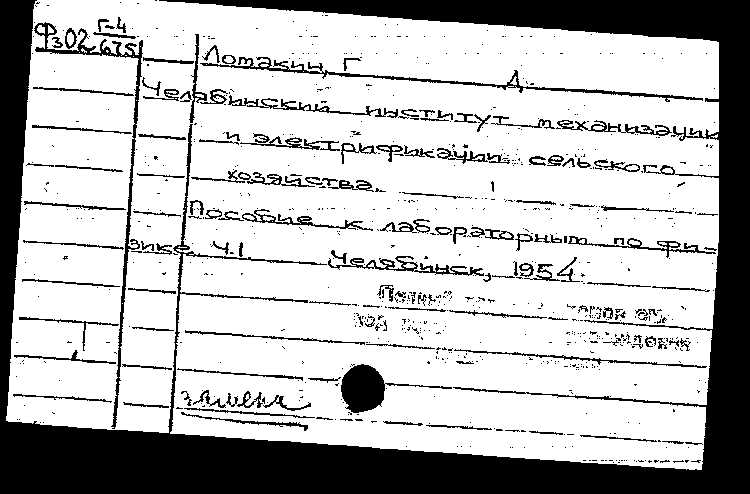 Фз02 Г-4/675
Лотакин, Г Д.
Челябинский институт механизации
и электрификации сельского
хозяйства.
Пособие к лабораторным по фи=
зике. Ч.I Челябинск, 1954.
замена